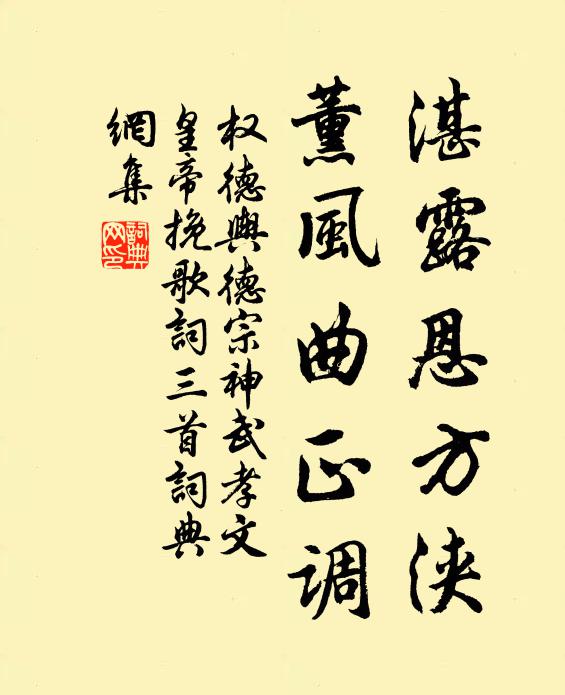 湛露恩方浃
薰風曲正调
权德輿德宗神武孝文
皇帝挽歌詞三首詞典
網集
詞典
网印